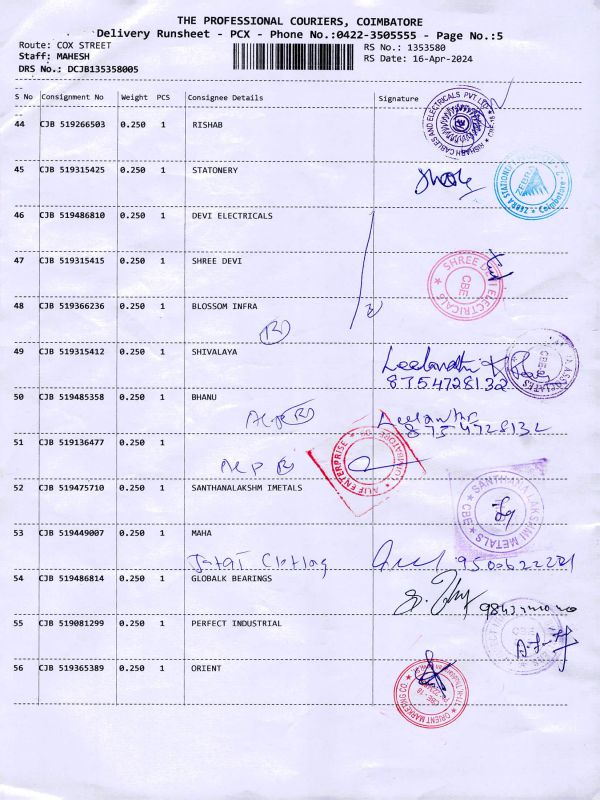 THE PROFESSIONAL COURIERS, COIMBATORE
Delivery Runsheet - PCX - Phone No.:0422-3505555 - Page No.:5
Route: COX STREET RS No.: 1353580
Staff: MAHESH RS Date: 16-Apr-2024
DRS No.: DCJB135358005
S No Consignment No Weight PCS Consignee Details Signature
44 CJB 519266503 0.250 1 RISHAB
RISHABH CABLES AND ELECTRICALS PVT LTD
45 CJB 519315425 0.250 1 STATONERY
ZEBRA Coimbatore
46 CJB 519486810 0.250 1 DEVI ELECTRICALS
47 CJB 519315415 0.250 1 SHREE DEVI
SHREE DEVI ELECTRICALS CBE
48 CJB 519366236 0.250 1 BLOSSOM INFRA
49 CJB 519315412 0.250 1 SHIVALAYA
8754728132
ASSOCIATES CBE
50 CJB 519485358 0.250 1 BHANU
8754728132
51 CJB 519136477 0.250 1
ALIF ENTERPRISE
52 CJB 519475710 0.250 1 SANTHANALAKSHM IMETALS
SANTHANA LAKSHMI METALS CBE
53 CJB 519449007 0.250 1 MAHA
54 CJB 519486814 0.250 1 GLOBALK BEARINGS
55 CJB 519081299 0.250 1 PERFECT INDUSTRIAL
56 CJB 519365389 0.250 1 ORIENT
ORIENT MARKETING CO. CBE-18